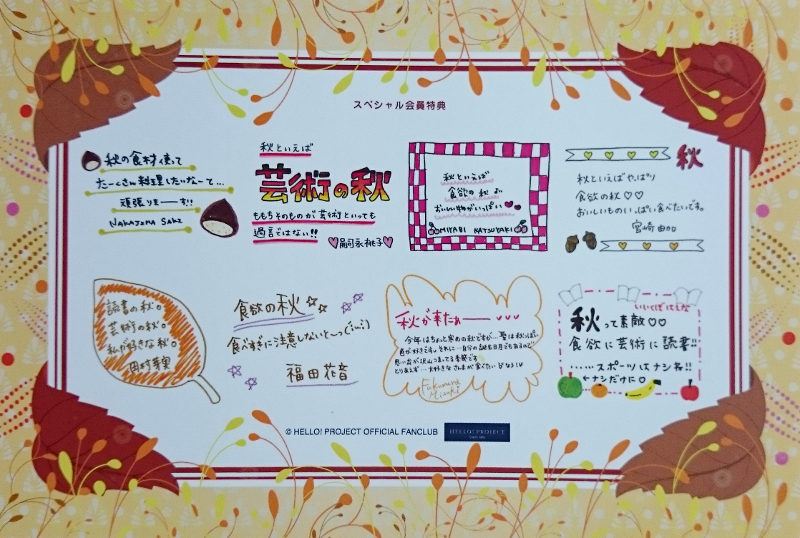 スペシャル会員特典
秋の食材使って
たーくさん料理したいなーて...
頑張りまーーす!!
NAKAJIMA SAKI
秋といえば
芸術の秋
ももちそのものが芸術といっても
過言ではない!!
嗣永桃子
秋といえば
食欲の秋
おいしい物がいっぱい
MIYABI NATSUYAKI
秋
秋といえばやっぱり
食欲の秋♡♡
おいしいものいっぱい食べたいです。
宮崎由加
読書の秋。
芸術の秋。
私が好きな秋。
田村芽実
食欲の秋
食べすぎに注意しないと〜っ
福田花音
秋が来たぁー
今年はちょっと早めの秋ですが
Fukumura
Mizuki
いいくぼはるな
秋って素敵♡♡
食欲に芸術に読書!!
……スポーツはナシ系!!
←ナシだけに
© HELLO! PROJECT OFFICIAL FANCLUB
HELLO! PROJECT